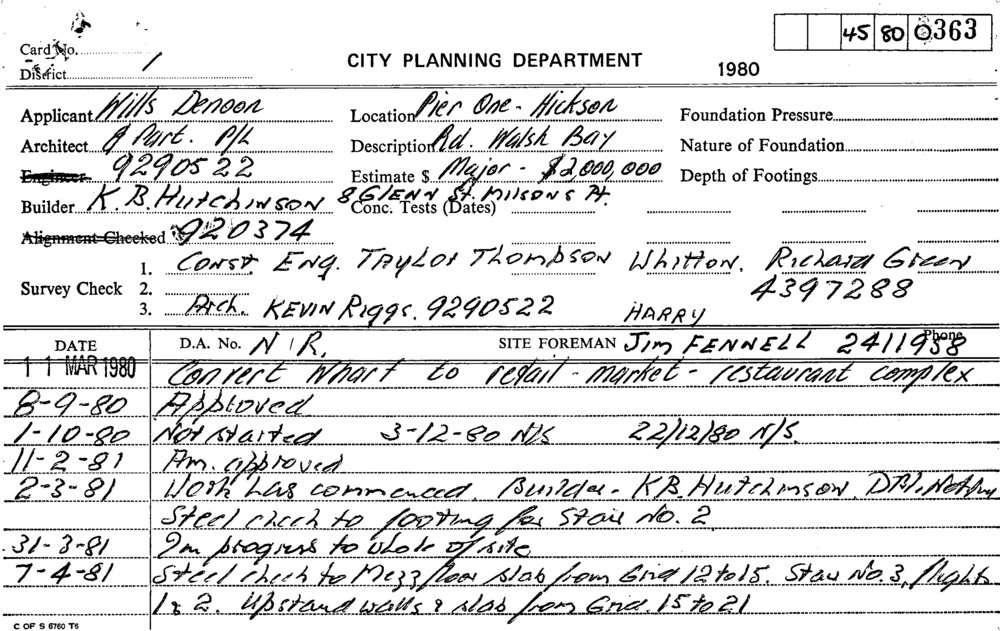 45 80 0363
Card No.
District 1
CITY PLANNING DEPARTMENT
1980
Applicant Wills Denoon
Location Pier One - Hickson
Foundation Pressure
Architect & Part. P/L
Description Rd. Walsh Bay
Nature of Foundation
Engineer 9290522
Estimate $ Major - $2,000,000
Depth of Footings
Builder K.B. Hutchinson 8 GLENN St. Milsons Pt.
Conc. Tests (Dates)
Alignment Checked 920374
Survey Check
1. Const Eng. Taylor Thompson Whitton. Richard Green
2. 4397288
3. Arch. KEVIN Riggs. 9290522 HARRY
DATE D.A. No. N/R. SITE FOREMAN Jim FENNELL Phone 2411958
11 MAR 1980 Convert Wharf to retail - market - restaurant complex
8-9-80 Approved
1-10-80 Not started 3-12-80 N/S 22/12/80 N/S.
11-2-81 Am. approved
2-3-81 Work has commenced. Builder - K.B. Hutchinson.
Steel check to footing for Stair No. 2
31-3-81 In progress to whole of site
7-4-81 Steel check to Mezz floor slab from Grid 12 to 15. Stair No. 3, flights
1 & 2. Upstand walls & slab from Grid. 15 to 21
C OF S 6760 T6